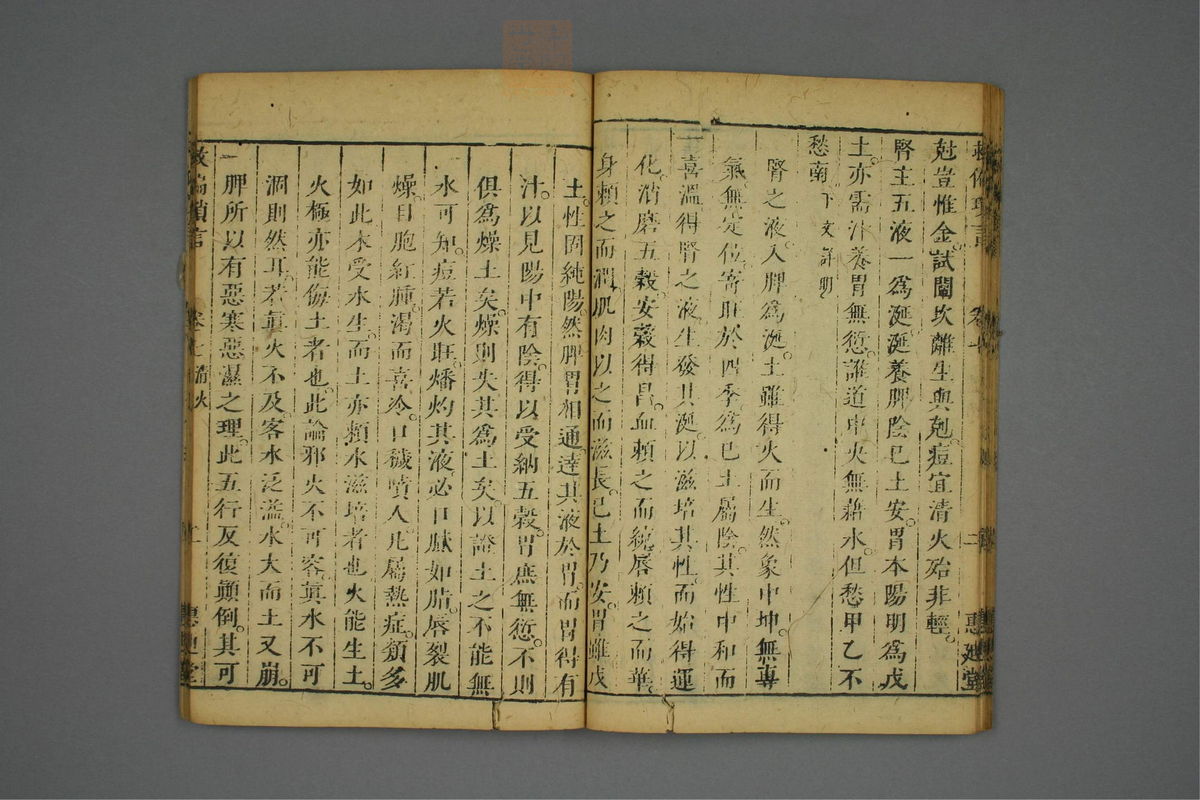 尅豈惟金試闡坎離生與尅痘宜清火殆非輕
腎主五液一爲涎涎養脾陰已土安胃本陽明爲戊
土亦需汁養胃無愆誰道中央無藉水但愁甲乙不
愁南下文詳明
腎之液入脾爲涎土雖得火而生然象中坤無專
氣無定位寄旺於四季爲已土屬陰其性中和而
喜溫得腎之液生發其涎以滋培其性而始得運
化消磨五穀安穀得昌血賴之而統唇賴之而華
身賴之而潤肌肉以之而滋長已土乃安胃雖戊
土性固純陽然脾胃相通達其液於胃而胃得有
汁以見陽中有陰得以受納五穀胃庶無愆不則
俱爲燥土矣燥則失其爲土矣以證土之不能無
水可知痘若火旺燔灼其液必口臙如脂唇裂肌
燥目胞紅腫渴而喜冷口穢噴人凡屬熱症頦多
如此木受水生而土亦賴水滋培者也火能生土
火極亦能侮土者也此論邪火不可容眞水不可
涸則然耳若眞火不及客水泛滥水大而土又崩
一脾所以有惡寒惡濕之理此五行反復顛倒其可
救偏瑣言
卷七 清火
二
惠迪堂